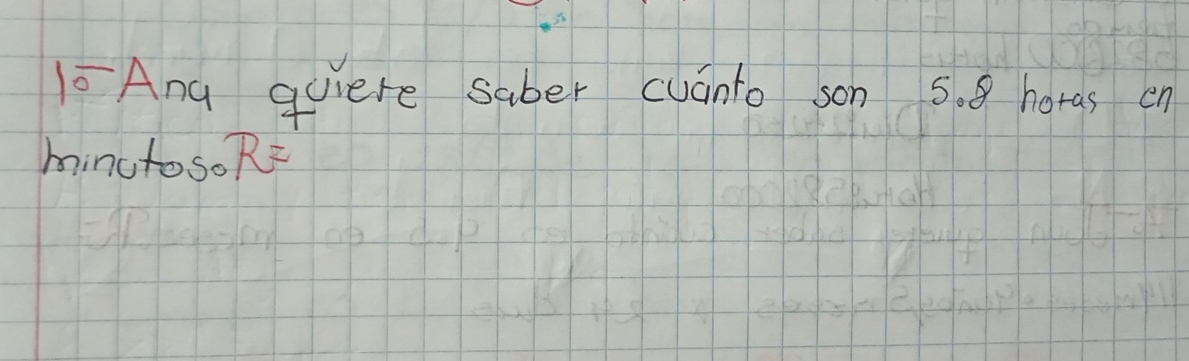 10- Ana quiere saber cuánto son 5.8 horas en
minutos. R=